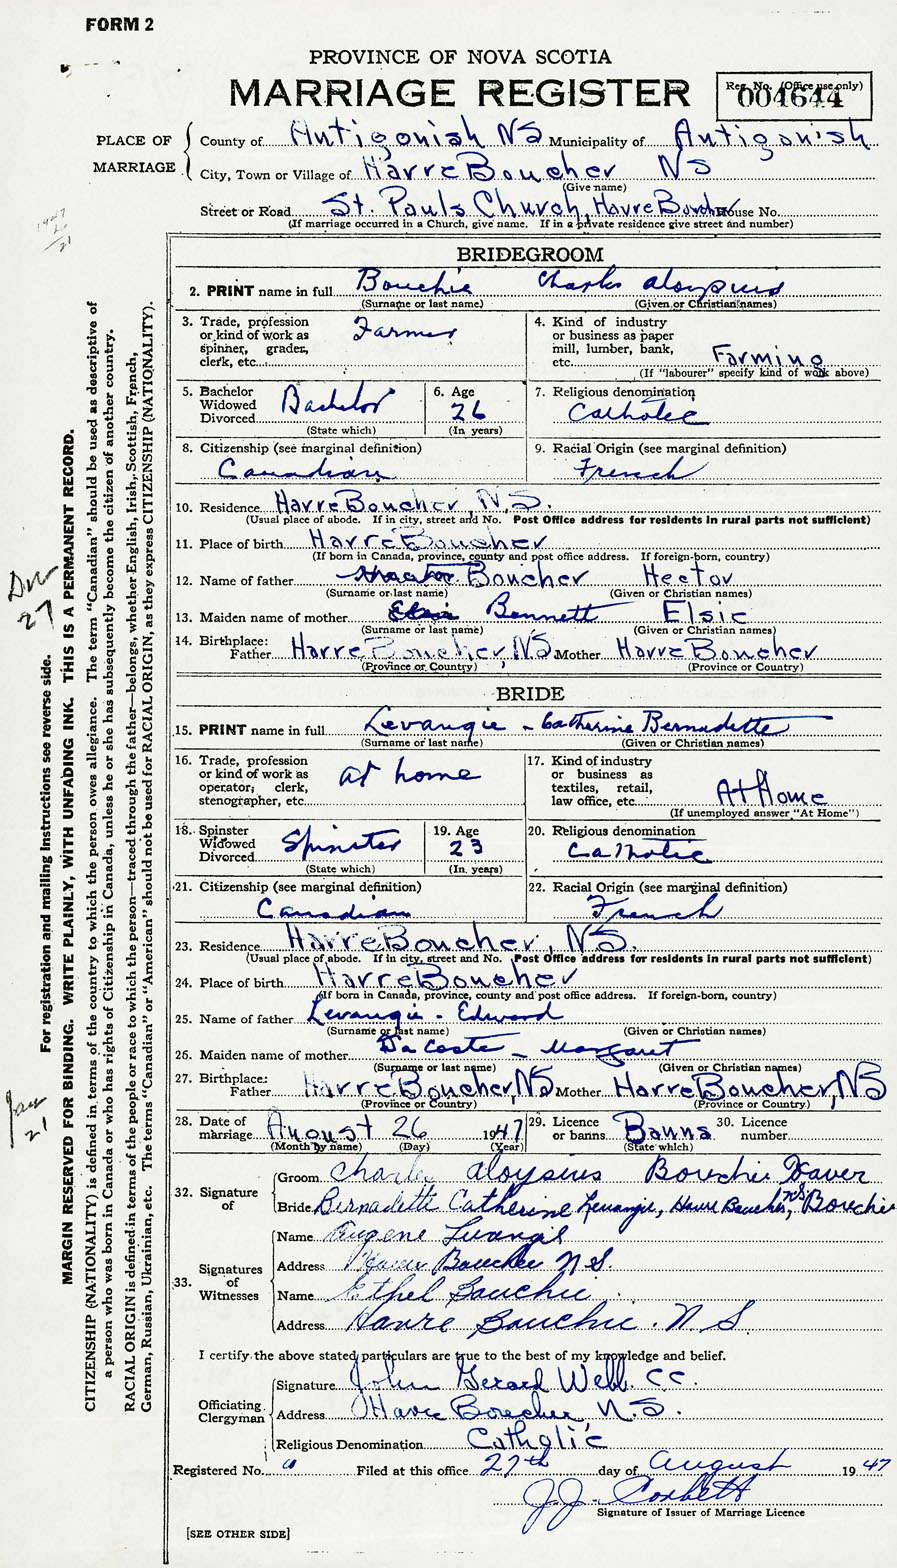 FORM 2
PROVINCE OF NOVA SCOTIA
MARRIAGE REGISTER
Reg. No. (Office use only)
004644
PLACE OF MARRIAGE
County of Antigonish NS Municipality of Antigonish
City, Town or Village of Harre Boucher NS
(Give name)
Street or Road St. Pauls Church, Havre Boucher House No.
(If marriage occurred in a Church, give name. If in a private residence give street and number)
BRIDEGROOM
2. PRINT name in full Bouchie Charles Aloysuis
(Surname or last name) (Given or Christian names)
3. Trade, profession or kind of work as spinner, grader, clerk, etc. Farmer
4. Kind of industry or business as paper mill, lumber, bank, etc. Farming
(If "labourer" specify kind of work above)
5. Bachelor Widowed Divorced Bachelor
(State which)
6. Age 26
(In years)
7. Religious denomination Catholic
8. Citizenship (see marginal definition) Canadian
9. Racial Origin (see marginal definition) French
10. Residence Harre Boucher, N.S.
(Usual place of abode. If in city, street and No. Post Office address for residents in rural parts not sufficient)
11. Place of birth Harre Boucher
(If born in Canada, province, county and post office address. If foreign-born, country)
12. Name of father Boucher Hector
(Surname or last name) (Given or Christian names)
13. Maiden name of mother Elsie Bennett Elsie
(Surname or last name) (Given or Christian names)
14. Birthplace: Father Harre Boucher, NS. Mother Harre Boucher
(Province or Country) (Province or Country)
BRIDE
15. PRINT name in full Levangie - Catherine Bernadette
(Surname or last name) (Given or Christian names)
16. Trade, profession or kind of work as operator; clerk, stenographer, etc. at home
17. Kind of industry or business as textiles, retail, law office, etc. At Home
(If unemployed answer "At Home")
18. Spinster Widowed Divorced Spinster
(State which)
19. Age 23
(In years)
20. Religious denomination Catholic
21. Citizenship (see marginal definition) Canadian
22. Racial Origin (see marginal definition) French
23. Residence Harre Boucher, NS.
(Usual place of abode. If in city, street and No. Post Office address for residents in rural parts not sufficient)
24. Place of birth Harre Boucher
(If born in Canada, province, county and post office address. If foreign-born, country)
25. Name of father Levangie - Edward
(Surname or last name) (Given or Christian names)
26. Maiden name of mother Da Coste - Margaret
(Surname or last name) (Given or Christian names)
27. Birthplace: Father Harre Boucher, NS Mother Harre Boucher, NS
(Province or Country) (Province or Country)
28. Date of marriage August 26 1947
(Month by name) (Day) (Year)
29. Licence or banns Banns
(State which)
30. Licence number
32. Signature of
Groom Charles Aloysius Bouchie Xaver
Bride Bernadette Catherine Levangie, Havre Boucher, NS Bouchie
33. Signatures of Witnesses
Name Eugene Livangie
Address Havre Boucher N S.
Name Ethel Bouchie
Address Havre Bouchie. N. S.
I certify the above stated particulars are true to the best of my knowledge and belief.
Officiating Clergyman
Signature John Gerard Webb. CC.
Address Havre Boucher, N.S.
Religious Denomination Catholic
Registered No. Filed at this office 27th day of August 1947
J. J. Corbett
Signature of Issuer of Marriage Licence
[SEE OTHER SIDE]
For registration and mailing instructions see reverse side.
MARGIN RESERVED FOR BINDING. WRITE PLAINLY, WITH UNFADING INK. THIS IS A PERMANENT RECORD.
CITIZENSHIP (NATIONALITY) is defined in terms of the country to which the person owes allegiance. The term "Canadian" should be used as descriptive of
a person who was born in Canada or who has rights of Citizenship in Canada, unless he or she has subsequently become the citizen of another country.
RACIAL ORIGIN is defined in terms of the people or race to which the person—traced through the father—belongs, whether English, Irish, Scottish, French,
German, Russian, Ukrainian, etc. The terms "Canadian" or "American" should not be used for RACIAL ORIGIN, as they express CITIZENSHIP (NATIONALITY).
27
Jan 21